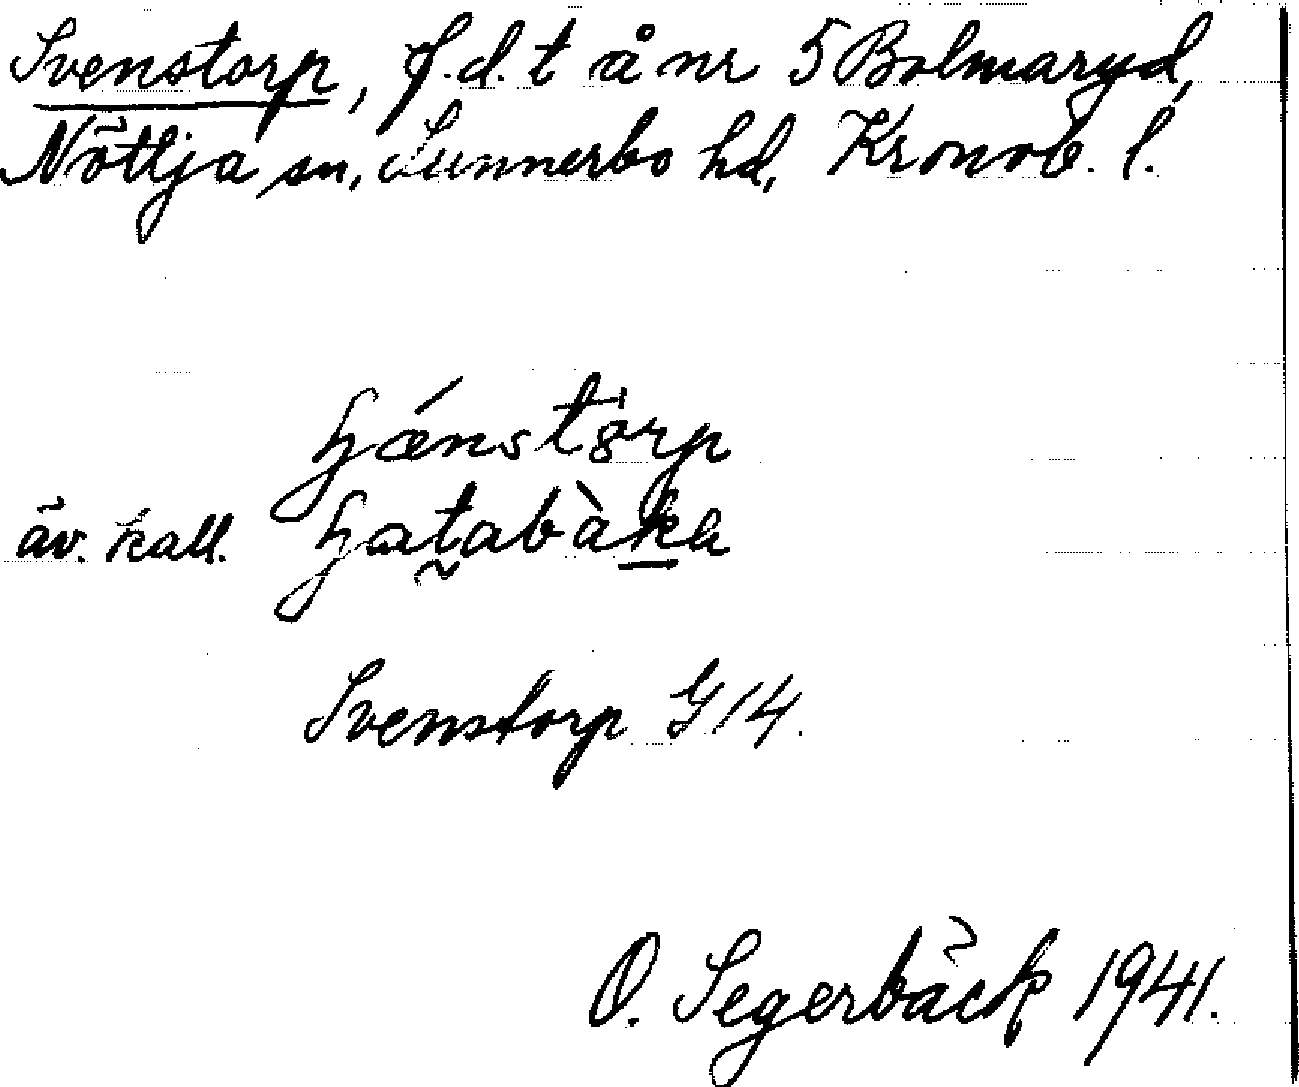 Svenstorp, f.d. t å nr 5 Bolmaryd,
Nöttja sn, Sunnerbo hd, Kronob. l.
äv. kall.
Svenstorp G 14.
O. Segerbäck 1941.